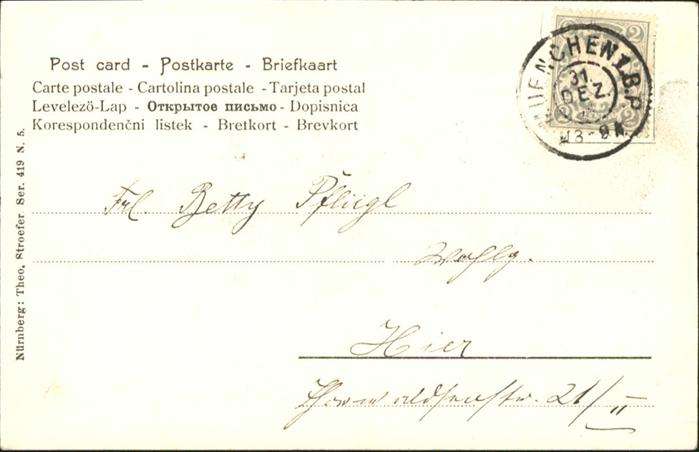 Post card - Postkarte - Briefkaart
Carte postale - Cartolina postale - Tarjeta postal
Levelező-Lap - Открытое письмо - Dopisnica
Korespondenční listek - Bretkort - Brevkort
Nürnberg: Theo. Stroefer Ser. 419 N. 5.
2
MUENCHEN I B.P.
31
DEZ.
Frl. Betty Pflügl
Wohlg.
Hier
Thorwaldsenstr. 21/II